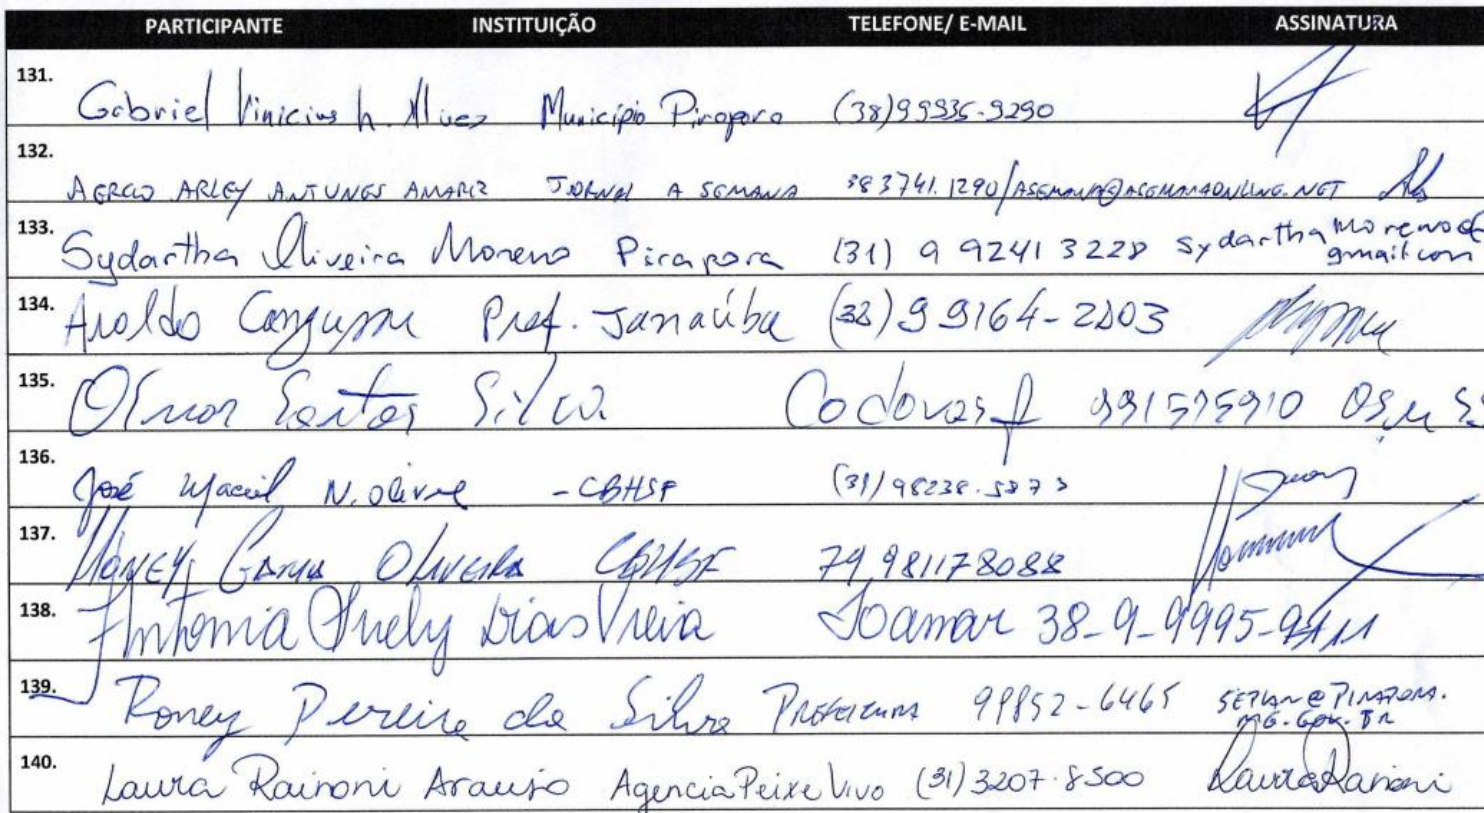 PARTICIPANTE INSTITUIÇÃO TELEFONE/ E-MAIL ASSINATURA
131. Gabriel Vinicius h. Alves Município Pirapora (38)99935-9290
132. ARLEY ANTUNES AMARIZ JORNAL A SEMANA 383741.1290/ASEMANA@ASEMANAONLINE.NET
133. Sydartha Oliveira Moreno Pirapora (31) 9 9241 3228 sydartha moreno@
gmail.com
134. Aroldo Cangussu Pref. Janaúba (38) 9 9164-2803
135. Santos Silva Codevasf 991575910
136. José Maciel N. Olivre - CBHSF (31) 98238.5873
137. OLIVEIRA CBHSF 79 981178088
138. Antonia Suely Dias Vieira Soamar 38-9-9995-9711
139. Roney Pereira da Silva PREFEITURA 99852-6465 SEPLAN@PIRAPORA.
MG.GOV.BR
140. Laura Rainoni Araujo Agencia Peixe Vivo (31) 3207-8500 Laura Rainoni